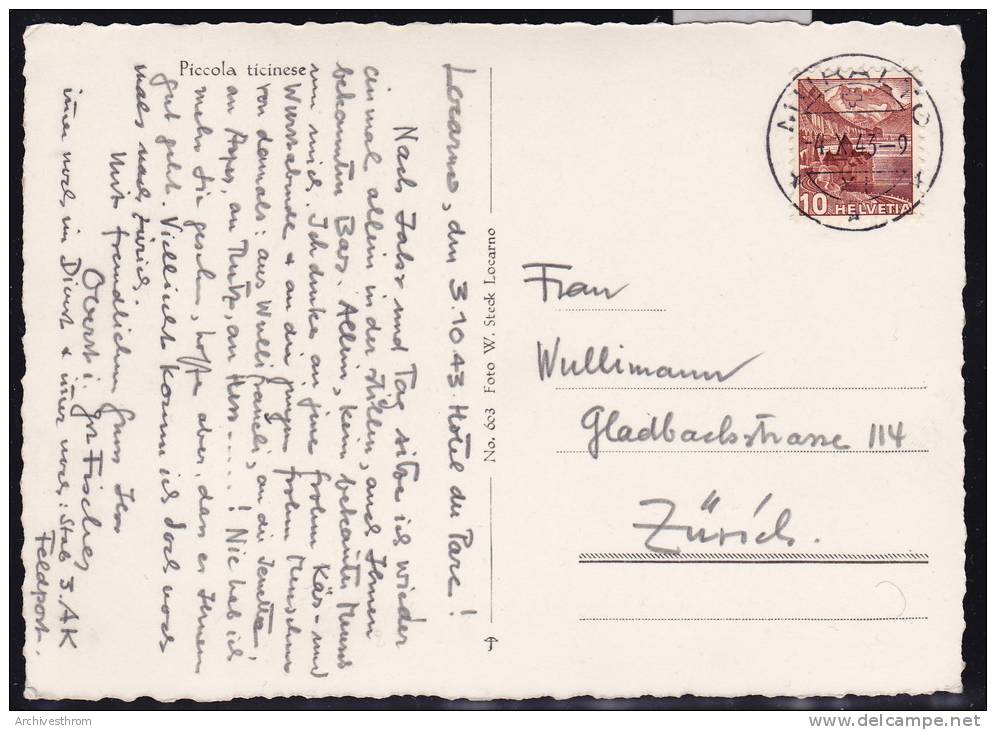 Piccola ticinese
Locarno, den 3.10 43. Hôtel du Parc!
Nach Jahr und Tag sitze ich wieder
einmal allein in der stillen, auch Ihnen
bekannten Bar. Allein, kein bekannter Mensch
um mich. Ich denke an jene frohen Käs- und
Wurstabende & an die jungen frohen Menschen
von damals: aus Wulli fraueli, an die Jenetta,
an Asper, an Hess....! Nie hab ich
mehr Sie gesehn, hoffe aber, dass es Ihnen
gut geht. Vielleicht komm ich doch noch
mals nach Zürich.
Mit freundlichem Gruss Ihr
Oberst i. Gst Fischer
immer noch im Dienst & immer noch: Stab 3. AK
Feldpost.
No. 603 Foto W. Steck Locarno
MURALTO
-4.X.43-9
10 HELVETIA
Frau
Wullimann
Gladbachstrasse 114
Zürich.
Archivesthrom
www.delcampe.net